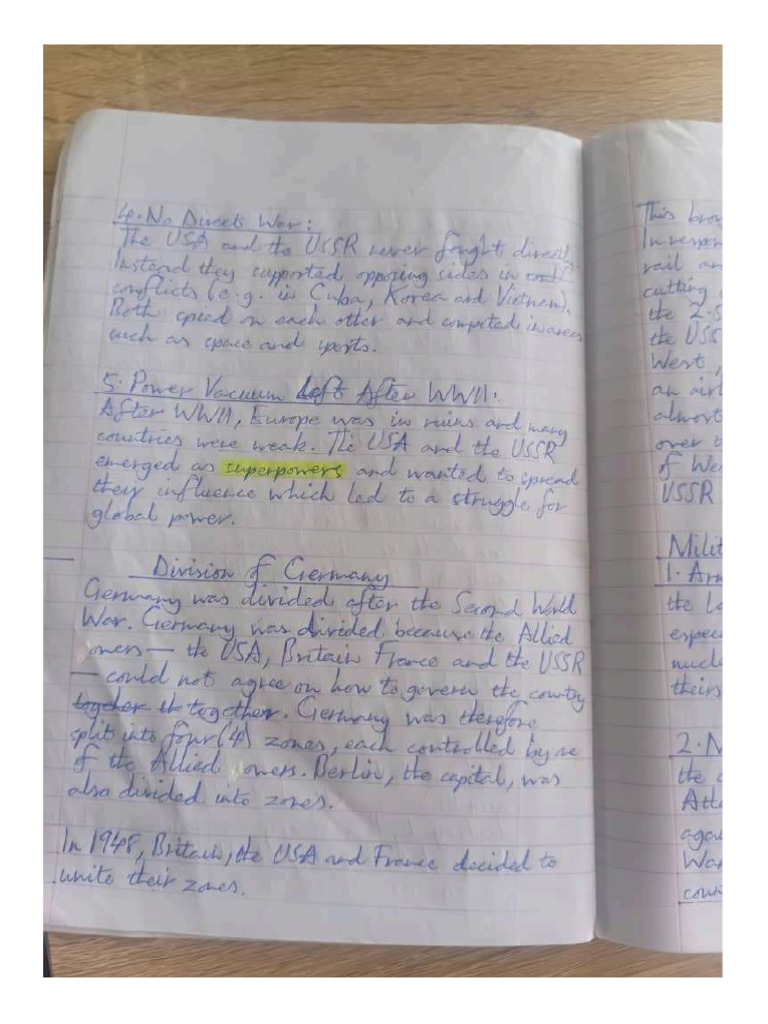 4. No Directs War:
The USA and the USSR never fought directly.
Instead they supported opposing sides in
conflicts (e.g. in Cuba, Korea and Vietnam).
Both spied on each other and competed in areas
such as space and sports.
5. Power Vacuum Left After WWII:
After WWII, Europe was in ruins and many
countries were weak. The USA and the USSR
emerged as superpowers and wanted to spread
they influence which led to a struggle for
global power.
Division of Germany
Germany was divided after the Second World
War. Germany was divided because the Allied
owers — the USA, Britain France and the USSR
— could not agree on how to govern the country
together it together. Germany was therefore
split into four (4) zones, each controlled by
of the Allied owers. Berlin, the capital, was
also divided into zones.
In 1948, Britain, the USA and France decided to
unite their zones.
This
In
rail
cutting
the 2.5
the USS
West,
an airl
almost
over t
of We
USSR
Milit
1. Arm
the
espec
nucle
theirs
2. N
the
Atla
agai
War
coun